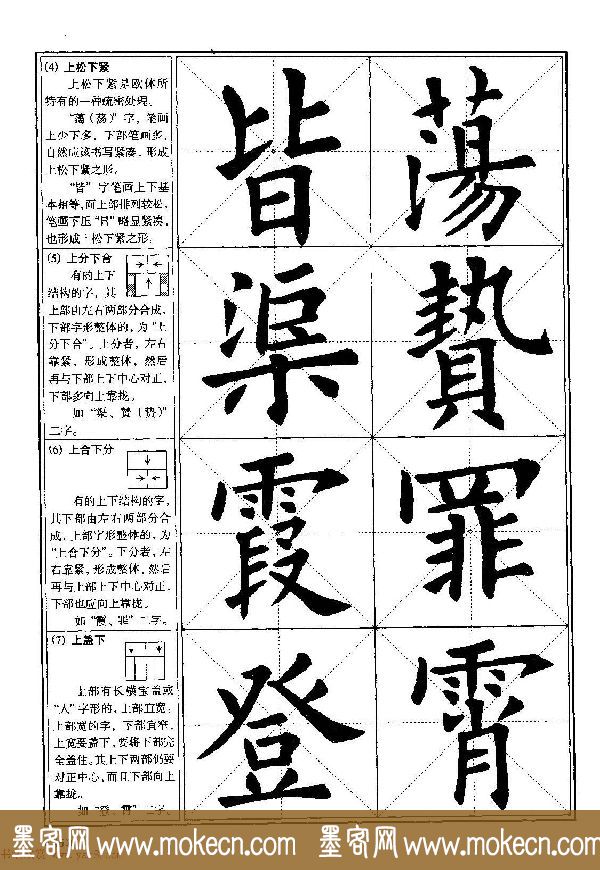 (4) 上松下紧
上松下紧是欧体所
特有的一种疏密处理。
“蕩（荡）”字，笔画
上少下多，下部笔画多，
自然应该书写紧凑，形成
上松下紧之形。
“皆”字笔画上下基
本相等，而上部排列较松，
笔画下压“日”略显紧凑，
也形成上松下紧之形。
(5) 上分下合
有的上下
结构的字，其
上部由左右两部分合成，
下部字形整体的，为“上
分下合”。上分者，左右
靠紧，形成整体，然后
再与下部上下中心对正，
下部多向上靠拢。
如“渠、贄（贽）”
二字。
(6) 上合下分
有的上下结构的字，
其下部由左右两部分合
成，上部字形整体的，为
“上合下分”。下分者，左
右靠紧，形成整体，然后
再与上部上下中心对正，
下部也应向上靠拢。
如“霞、罪”二字。
(7) 上盖下
上部有长横宝盖或
“人”字形的，上部宜宽；
上部宽的字，下部宜窄，
上宽要盖下，要将下部完
全盖住，其上下两部仍要
对正中心，而且下部向上
靠拢。
如“登、霄”二字。
皆 蕩
渠 贄
霞 罪
登 霄
墨客网 www.mokecn.com 墨客网 www.mokecn.com